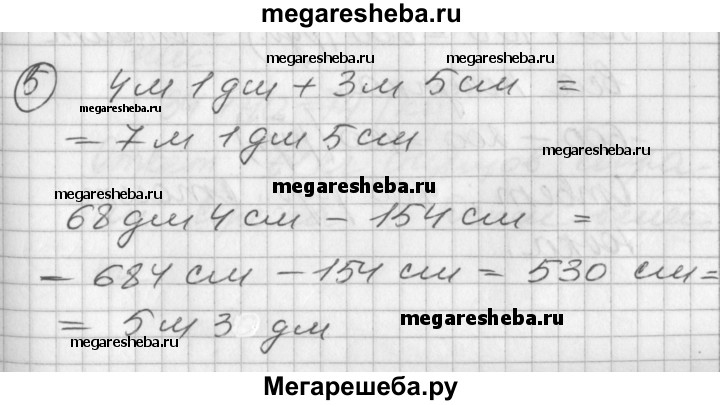 megaresheba.ru
megaresheba.ru megaresheba.ru
⑤ 4 м 1 дм + 3 м 5 см =
megaresheba.ru
= 7 м 1 дм 5 см
megaresheba.ru
megaresheba.ru megaresheba.ru
68 дм 4 см - 154 см =
= 684 см - 154 см = 530 см =
= 5 м 3 дм
megaresheba.ru
megaresheba.ru
Мегарешеба.ру